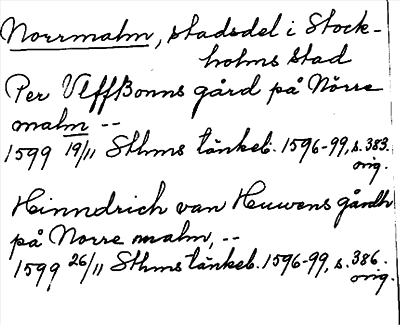 Norrmalm, stadsdel i Stock-
holms stad
Per Ulffbonns gård på Nörre
malm --
1599 19/11 Sthms tänkeb. 1596-99, s. 383.
orig.
Hinndrich van Huwens gårdh
på Norre malm, --
1599 26/11 Sthms tänkeb. 1596-99, s. 386.
orig.